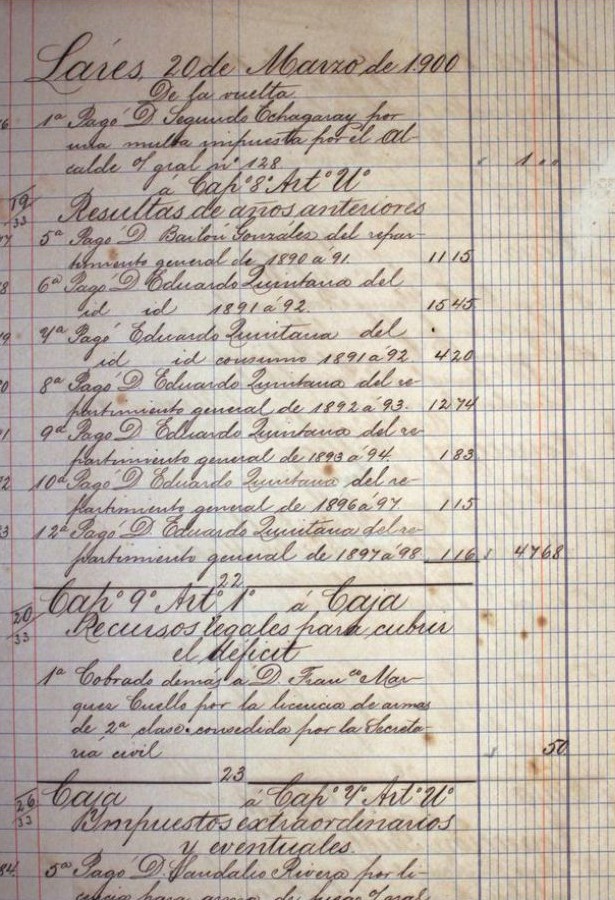 Lares, 20 de Marzo de 1900
De la vuelta
76 1ª Pagó D Segundo Echagaray por
una multa impuesta por el Al-
calde O/ gral nº 128 1 ..
á Capº 8º Artº Uº
19/33 Resultas de años anteriores
77 5ª Pagó D Bailon Gonzáles del repar-
timiento general de 1890 a 91 11 15
78 6ª Pagó D Eduardo Quintana del
id id 1891 á 92. 15 45
79 7ª Pagó Eduardo Quintana del
id id consumo 1891 á 92 4 20
80 8ª Pagó D Eduardo Quintana del re-
partimiento general de 1892 á 93. 12 74
81 9ª Pagó D Eduardo Quintana del re-
partimiento general de 1893 a 94. 1 83
82 10ª Pagó D Eduardo Quintana del re-
partimiento general de 1896 á 97 1 15
83 12ª Pagó D. Eduardo Quintana del re-
partimiento general de 1897 á 98 1 16 47 68
22
Capº 9º Artº 1º á Caja
20/33 Recursos legales para cubrir
el déficit
1ª Cobrado demás á D. Franco Mar-
ques Cuello por la licencia de armas
de 2ª clase concedida por la Secreta-
ria civil 50
23
26/33 Caja á Capº 4º Artº Uº
Impuestos extraordinarios
y eventuales
84 5ª Pagó D. Sandalio Rivera por li-
cencia para de